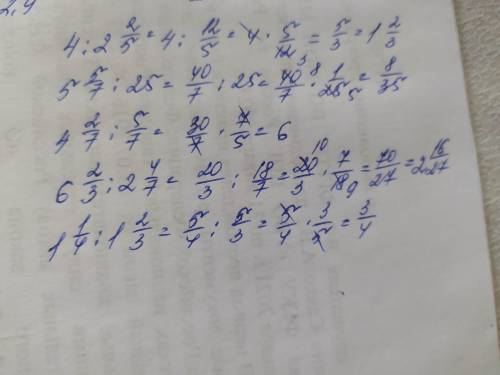 2,4
4 : 2 2/5 = 4 : 12/5 = 4 · 5/12 3 = 5/3 = 1 2/3
5 5/7 : 25 = 40/7 : 25 = 40 8/7 · 1/25 5 = 8/35
4 2/7 : 5/7 = 30/7 · 7/5 = 6
6 2/3 : 2 4/7 = 20/3 : 18/7 = 20 10/3 · 7/18 9 = 70/27 = 2 16/27
1 1/4 : 1 2/3 = 5/4 : 5/3 = 5/4 · 3/5 = 3/4